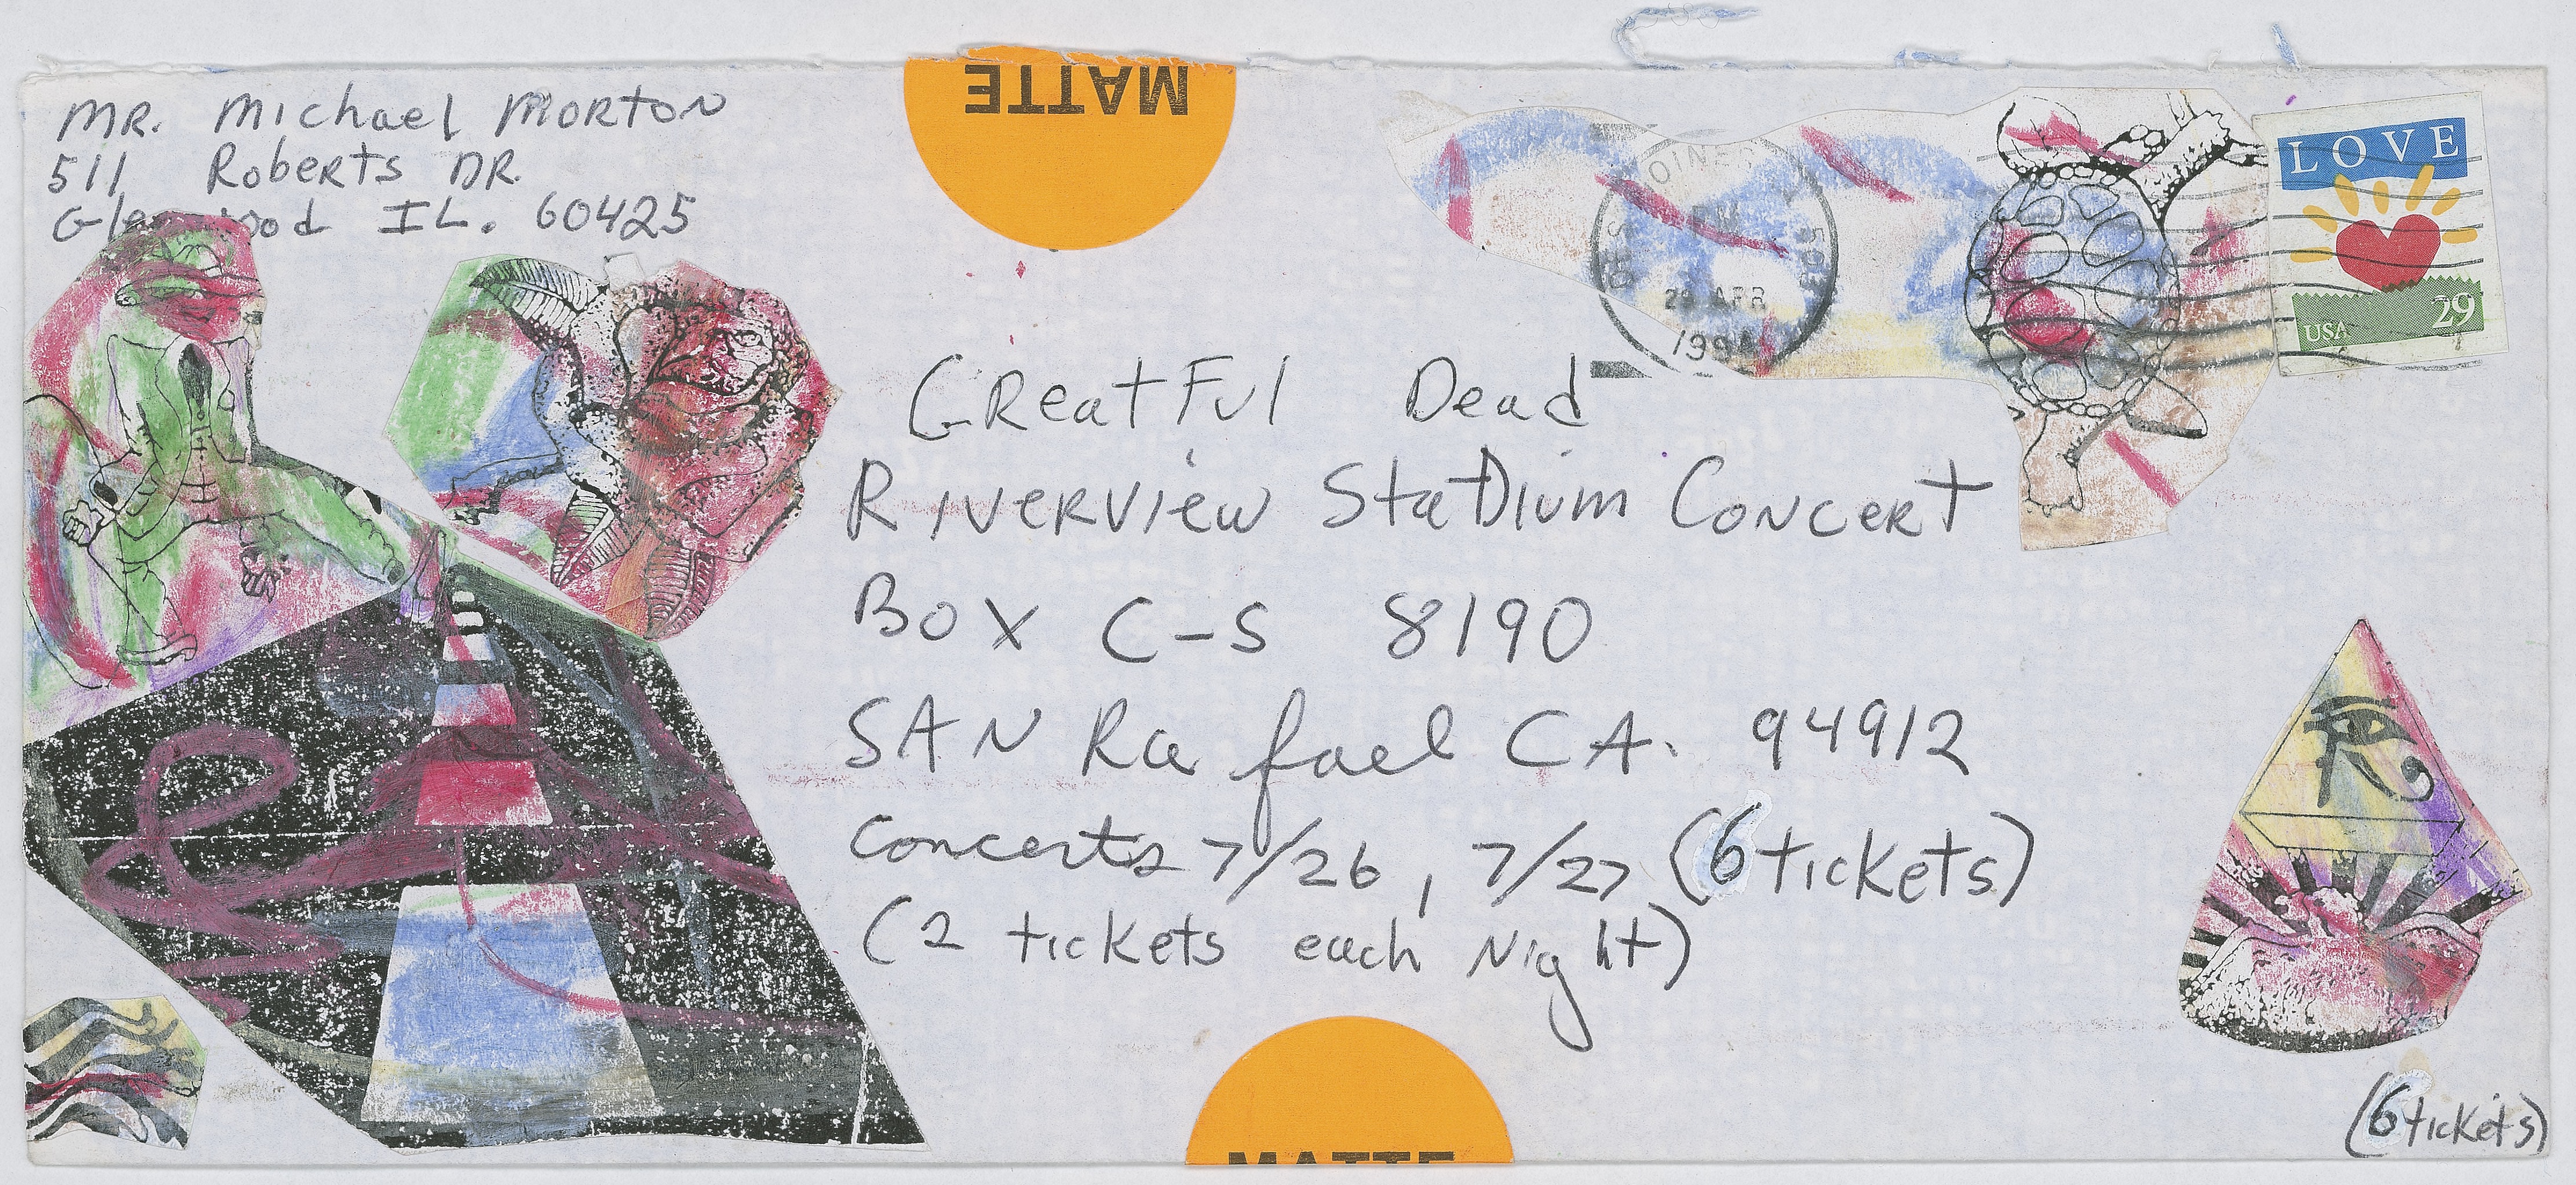 MR. Michael MORTON
511 Roberts DR.
IL. 60425
MATTE
29 APR
1994
LOVE
USA 29
GReatFul Dead
RIVERVIEW StaDium CONCERT
BOX C-S 8190
SAN Rafael CA. 94912
Concerts 7/26, 7/27 (6 tickets)
(2 tickets each Night)
MATTE
(6 tickets)